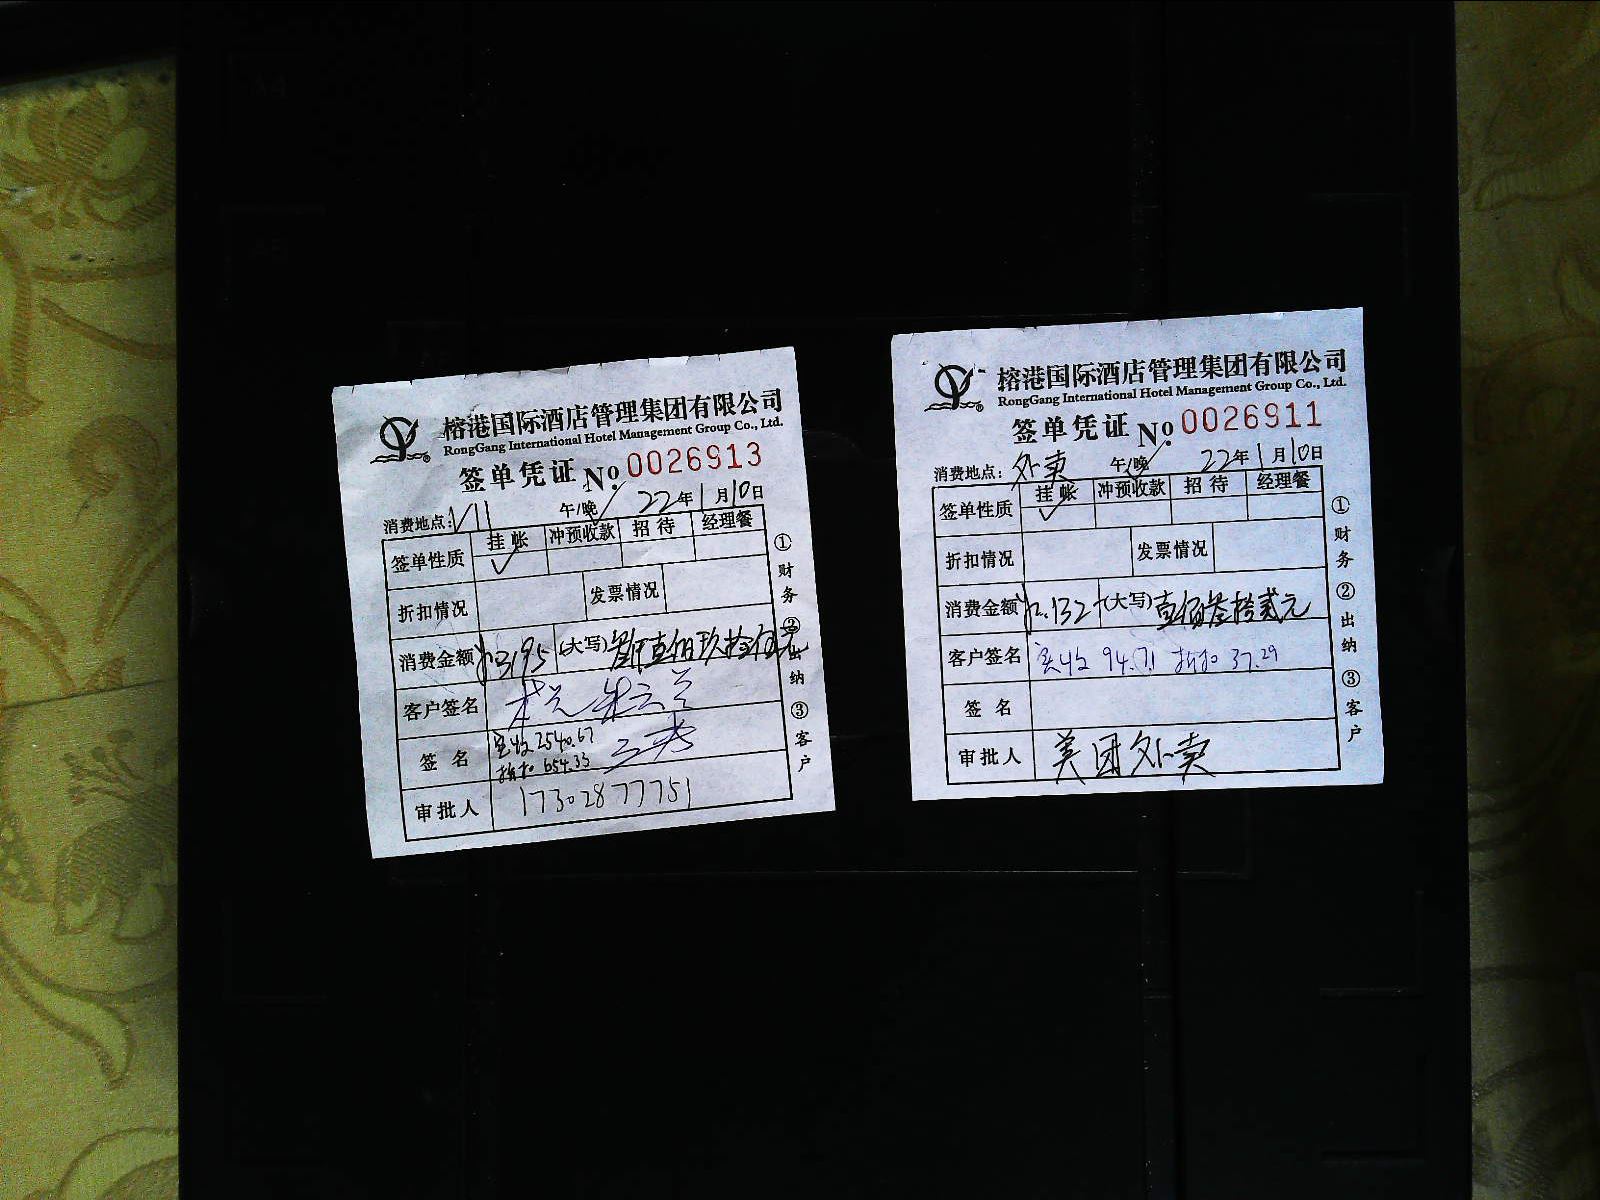 榕港国际酒店管理集团有限公司
RongGang International Hotel Management Group Co., Ltd.
签单凭证 No. 0026913
消费地点: V11 午/晚 22年1月10日
签单性质 挂帐 冲预收款 招待 经理餐
✓
折扣情况 发票情况
消费金额 3195 (大写) 叁仟壹佰玖拾伍元
客户签名
签名 实收 2540.67
折扣 654.33
审批人 17302877751
①财务 ②出纳 ③客户
榕港国际酒店管理集团有限公司
RongGang International Hotel Management Group Co., Ltd.
签单凭证 No. 0026911
消费地点: 外卖 午/晚 22年1月10日
签单性质 挂帐 冲预收款 招待 经理餐
✓
折扣情况 发票情况
消费金额 132 (大写) 壹佰叁拾贰元
客户签名 实收 94.71 折扣 37.29
签名
审批人 美团外卖
①财务 ②出纳 ③客户